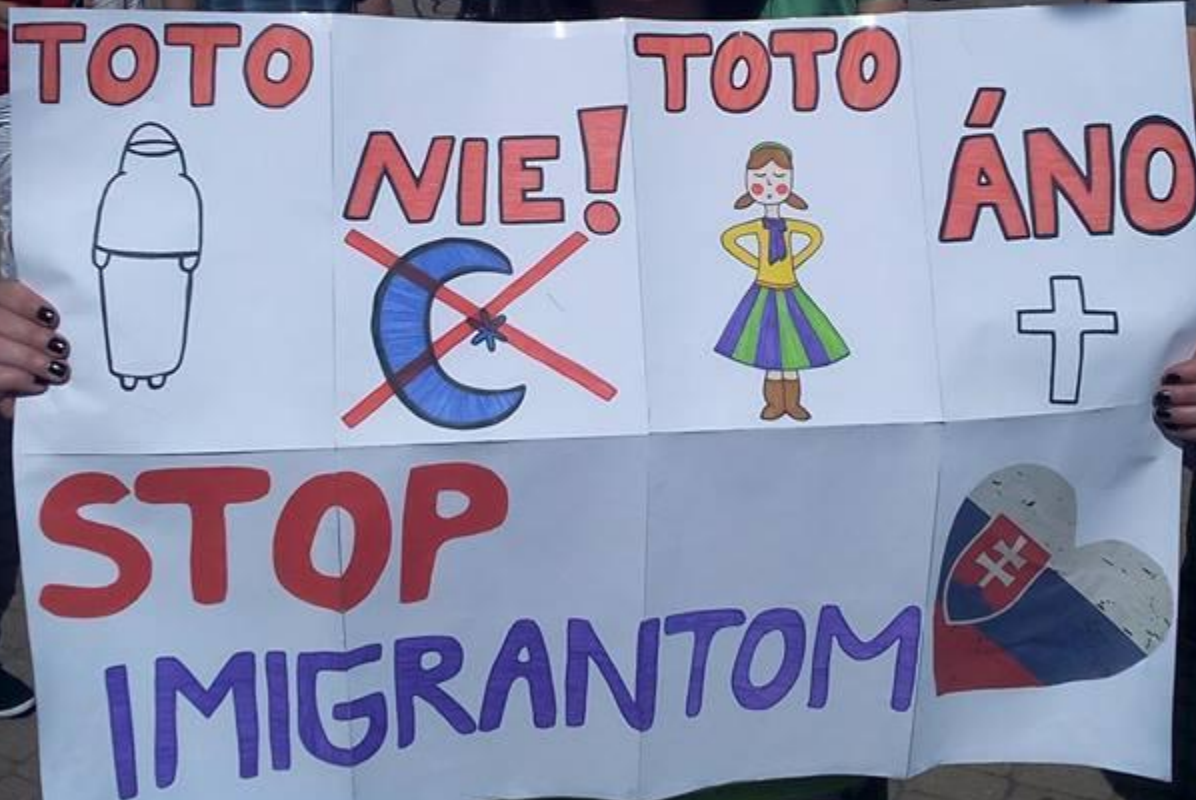 TOTO
NIE!
TOTO
ÁNO
STOP
IMIGRANTOM